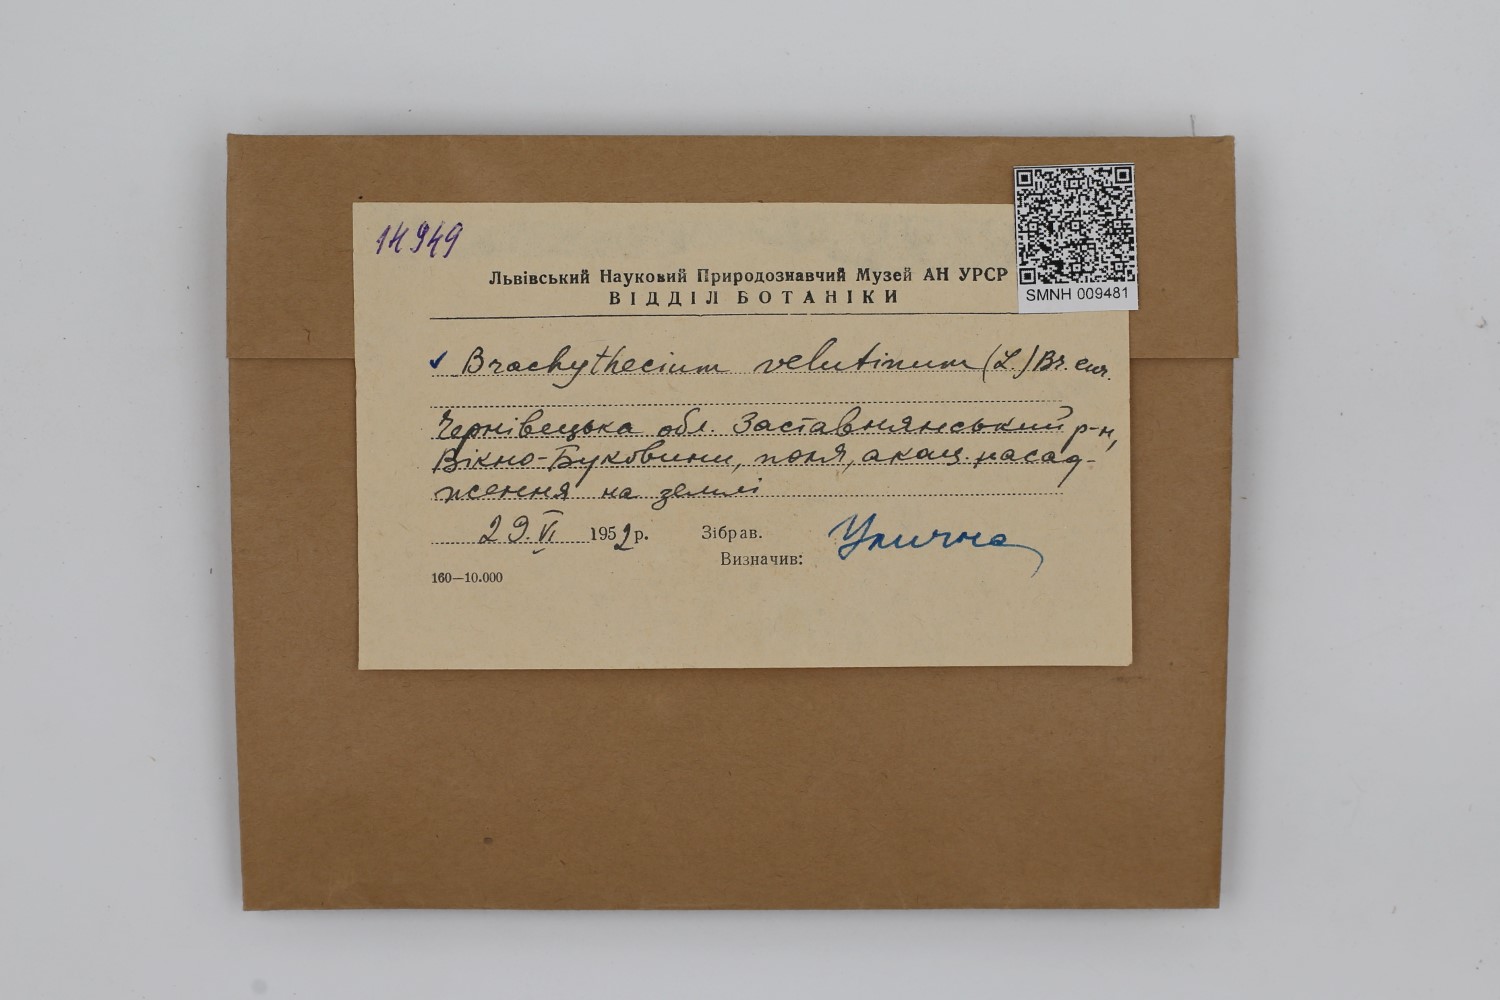 14949
Львівський Науковий Природознавчий Музей АН УРСР
ВІДДІЛ БОТАНІКИ
SMNH 009481
✓ Brachythecium velutinum (L.) Br. eur.
Чернівецька обл. Заставнянський р-н,
Вікно-Буковини, поля, акац. насад-
ження на землі
29.VI 1952 р. Зібрав.
Улична
Визначив:
160—10.000